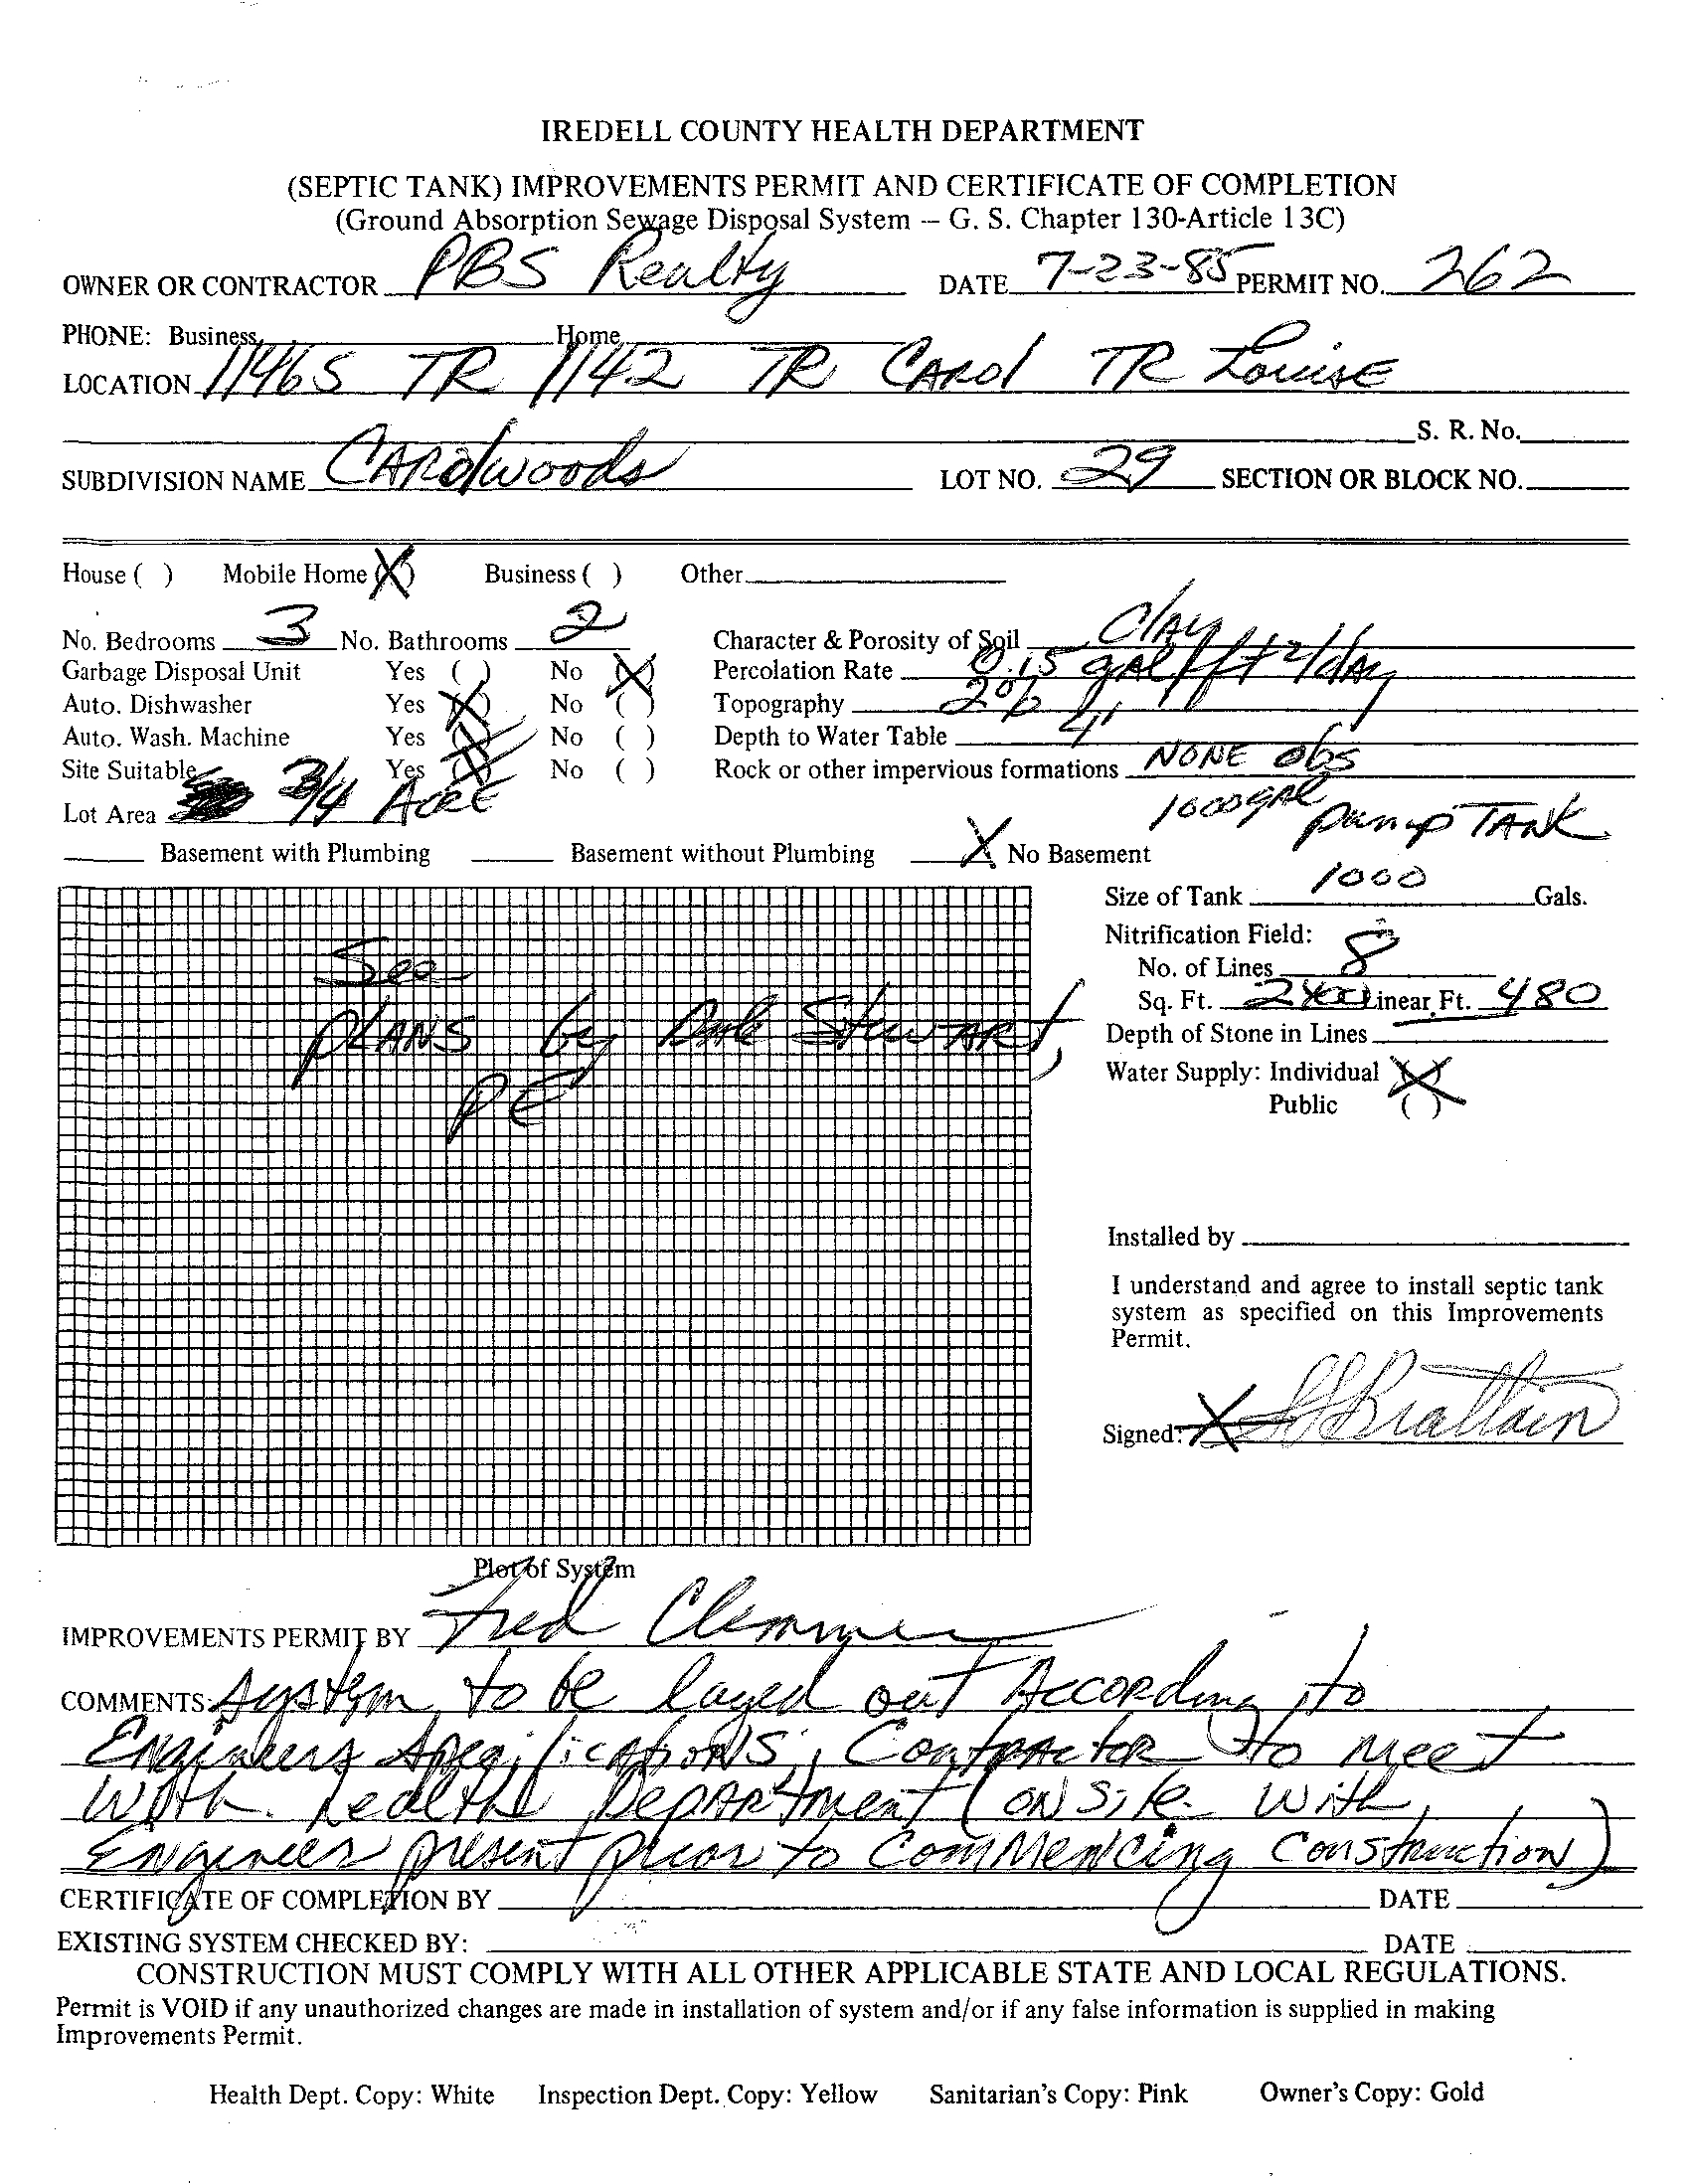 IREDELL COUNTY HEALTH DEPARTMENT
(SEPTIC TANK) IMPROVEMENTS PERMIT AND CERTIFICATE OF COMPLETION
(Ground Absorption Sewage Disposal System – G. S. Chapter 130-Article 13C)
OWNER OR CONTRACTOR PBS Realty DATE 7-23-85 PERMIT NO. 262
PHONE: Business Home
LOCATION 1146S TR 1142 TR CAROl TR Louise
S. R. No.
SUBDIVISION NAME CAROlwoods LOT NO. 29 SECTION OR BLOCK NO.
House ( ) Mobile Home (X) Business ( ) Other
No. Bedrooms 3 No. Bathrooms 2 Character & Porosity of Soil Clay
Garbage Disposal Unit Yes ( ) No (X) Percolation Rate 0.15 gal/ft2/day
Auto. Dishwasher Yes (X) No ( ) Topography 2%
Auto. Wash. Machine Yes (X) No ( ) Depth to Water Table 4'
Site Suitable Yes (X) No ( ) Rock or other impervious formations NONE obs
Lot Area 3/4 Acre 1000gal pump TANK
Basement with Plumbing Basement without Plumbing X No Basement
Size of Tank 1000 Gals.
Nitrification Field:
No. of Lines 8
Sq. Ft. 2400 Linear Ft. 480
Depth of Stone in Lines
Water Supply: Individual (X)
Public ( )
See
PLANS by Dale Stewart,
PE
Installed by
I understand and agree to install septic tank
system as specified on this Improvements
Permit.
Signed: X Brattain
Plot of System
IMPROVEMENTS PERMIT BY Fred Clemmer
COMMENTS: System to be layed out According to
Engineers Specifications, Contractor to Meet
With Health Department (on Site With
Engineer present prior to Commencing Construction)
CERTIFICATE OF COMPLETION BY DATE
EXISTING SYSTEM CHECKED BY: DATE
CONSTRUCTION MUST COMPLY WITH ALL OTHER APPLICABLE STATE AND LOCAL REGULATIONS.
Permit is VOID if any unauthorized changes are made in installation of system and/or if any false information is supplied in making
Improvements Permit.
Health Dept. Copy: White Inspection Dept. Copy: Yellow Sanitarian's Copy: Pink Owner's Copy: Gold